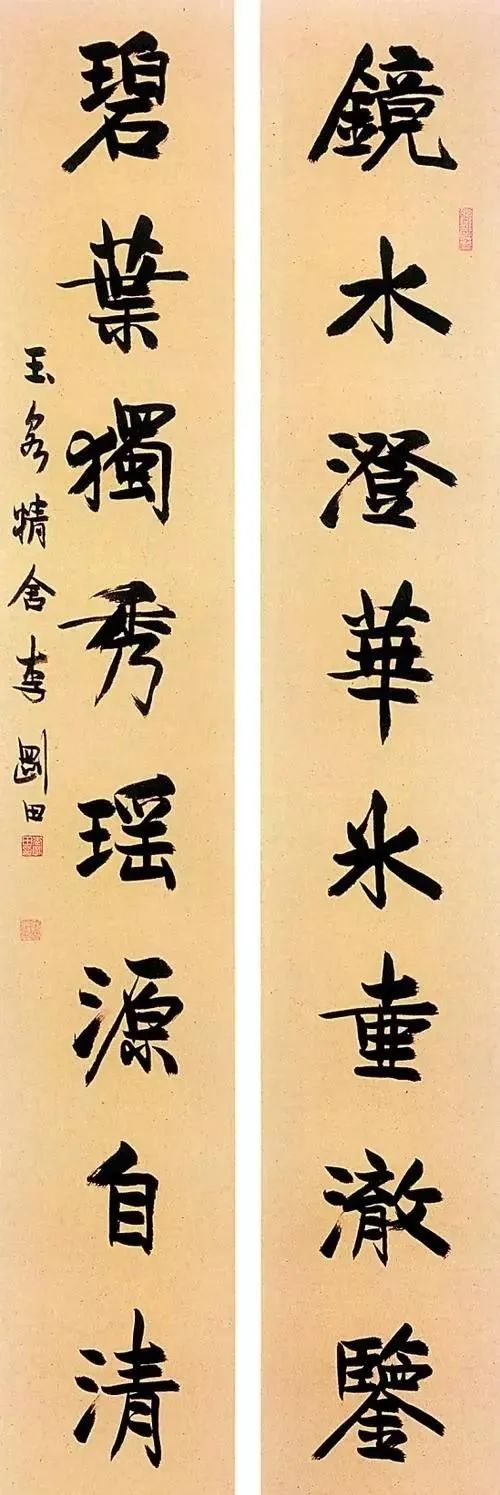 鏡水澄華冰壺澈鑒
碧葉獨秀瑶源自清
玉泉精舍李剛田